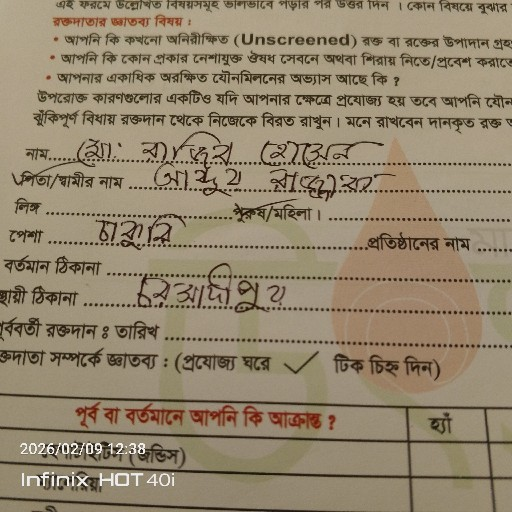 এই ফরমে উল্লেখিত বিষয়সমূহ ভালভাবে পড়ার পর উত্তর দিন । কোন বিষয়ে বুঝার
রক্তদাতার জ্ঞাতব্য বিষয় :
• আপনি কি কখনো অনিরীক্ষিত (Unscreened) রক্ত বা রক্তের উপাদান গ্রহ
• আপনি কি কোন প্রকার নেশাযুক্ত ঔষধ সেবনে অথবা শিরায় নিতে/প্রবেশ করাতে
• আপনার একাধিক অরক্ষিত যৌনমিলনের অভ্যাস আছে কি ?
উপরোক্ত কারণগুলোর একটিও যদি আপনার ক্ষেত্রে প্রযোজ্য হয় তবে আপনি যৌন
ঝুঁকিপূর্ণ বিধায় রক্তদান থেকে নিজেকে বিরত রাখুন । মনে রাখবেন দানকৃত রক্ত
নাম.... মো: রাজিব হোসেন
পিতা/স্বামীর নাম .... আব্দুর রাজ্জাক
লিঙ্গ .... পুরুষ/মহিলা ।
পেশা .... চাকুরি .... প্রতিষ্ঠানের নাম ....
বর্তমান ঠিকানা ....
স্থায়ী ঠিকানা .... চরআদীপুর
পূর্ববর্তী রক্তদান ঃ তারিখ ....
ক্তদাতা সম্পর্কে জ্ঞাতব্য : (প্রযোজ্য ঘরে ✓ টিক চিহ্ন দিন)
পূর্ব বা বর্তমানে আপনি কি আক্রান্ত ? হ্যাঁ
(জন্ডিস)
2026/02/09 12:38
Infinix HOT 40i